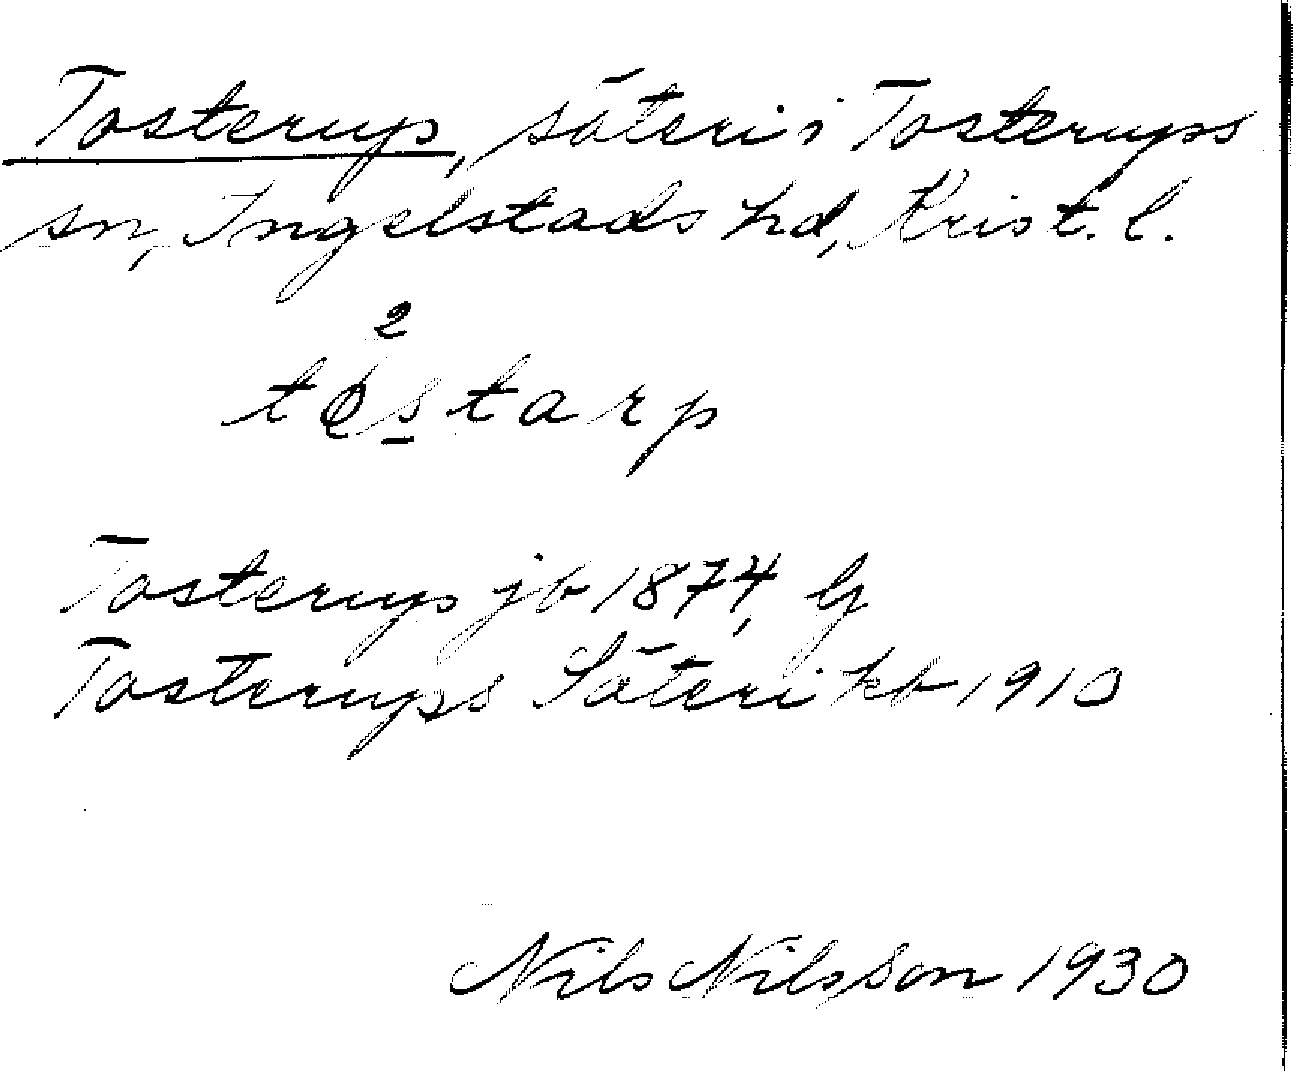 Tosterup, säteri i Tosterups
sn, Ingelstads hd, Krist. l.
2
tɷs̲tarp
Tosterup jb 1874, G
Tosterups Säteri kb 1910
Nils Nilsson 1930